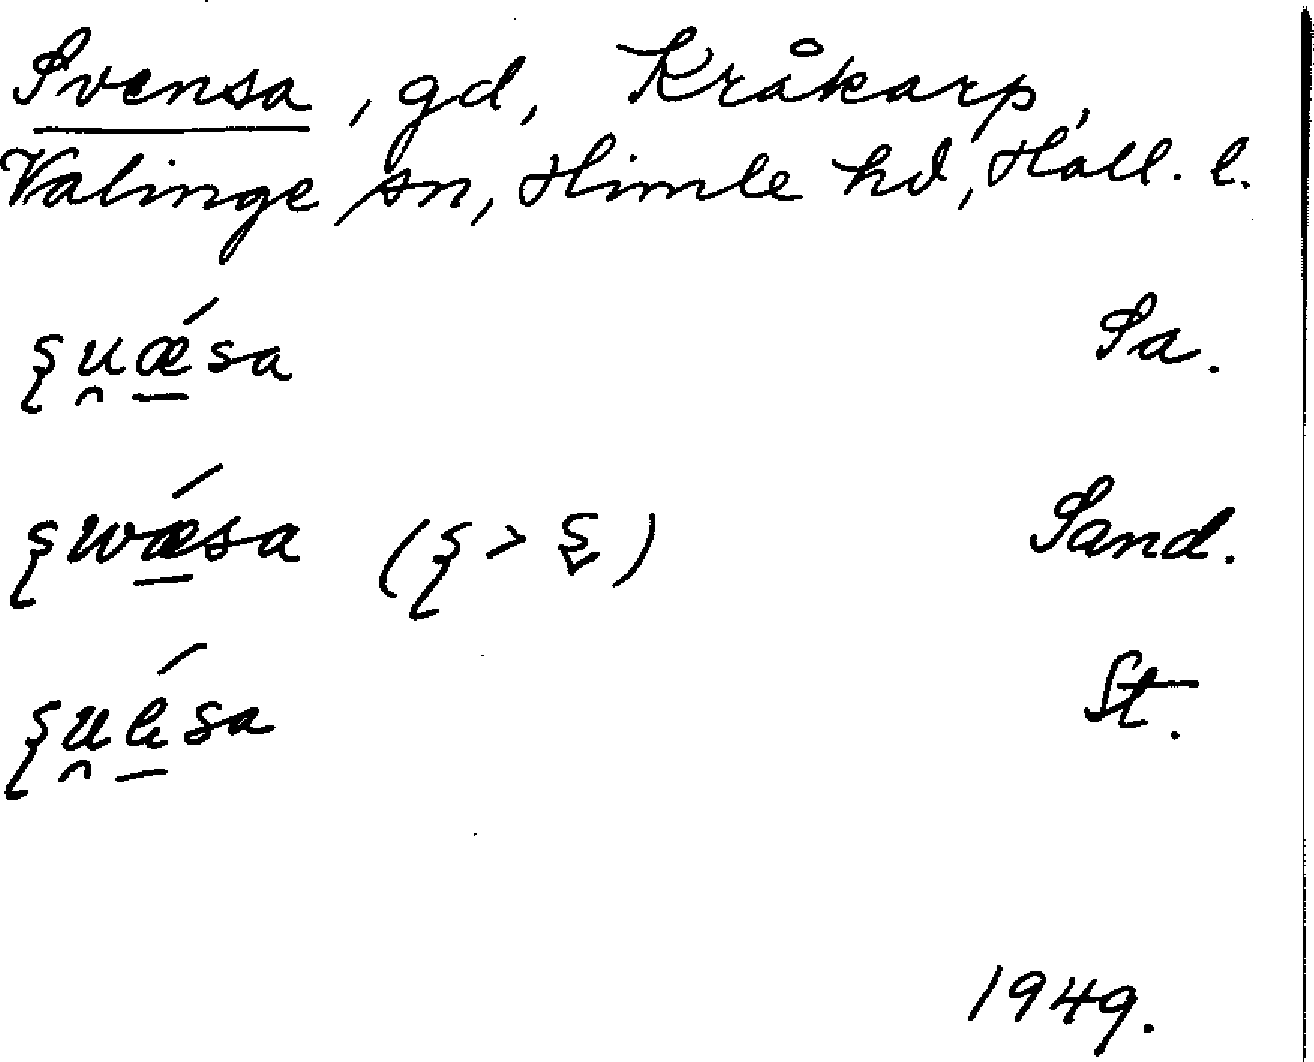 Svensa, gd, Kråkarp,
Valinge sn, Himle hd, Hall. l.
ʂu̯ǽ̱sa Sa.
ʂwǽ̱sa (ʂ > s̬) Sand.
ʂu̯é̱sa St.
1949.